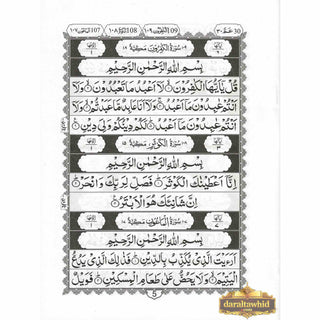 عم ٣٠ 30 الكفرون ١٠٩ 109 الكوثر ١٠٨ 108 الماعون ١٠٧ 107
سُوْرَةُ الْكٰفِرُوْنَ مَكِّيَّةٌ
بِسْمِ اللهِ الرَّحْمٰنِ الرَّحِيْمِ
قُلْ يٰٓاَيُّهَا الْكٰفِرُوْنَ ۝ لَآ اَعْبُدُ مَا تَعْبُدُوْنَ ۝ وَلَآ
اَنْتُمْ عٰبِدُوْنَ مَآ اَعْبُدُ ۝ وَلَآ اَنَا عَابِدٌ مَّا عَبَدْتُّمْ ۝ وَلَآ
اَنْتُمْ عٰبِدُوْنَ مَآ اَعْبُدُ ۝ لَكُمْ دِيْنُكُمْ وَلِيَ دِيْنِ ۝
سُوْرَةُ الْكَوْثَرِ مَكِّيَّةٌ
بِسْمِ اللهِ الرَّحْمٰنِ الرَّحِيْمِ
اِنَّآ اَعْطَيْنٰكَ الْكَوْثَرَ ۝ فَصَلِّ لِرَبِّكَ وَانْحَرْ ۝
اِنَّ شَانِئَكَ هُوَ الْاَبْتَرُ ۝
سُوْرَةُ الْمَاعُوْنِ مَكِّيَّةٌ
بِسْمِ اللهِ الرَّحْمٰنِ الرَّحِيْمِ
اَرَءَيْتَ الَّذِيْ يُكَذِّبُ بِالدِّيْنِ ۝ فَذٰلِكَ الَّذِيْ يَدُعُّ
الْيَتِيْمَ ۝ وَلَا يَحُضُّ عَلٰى طَعَامِ الْمِسْكِيْنِ ۝ فَوَيْلٌ
5
daraltawhid
.com